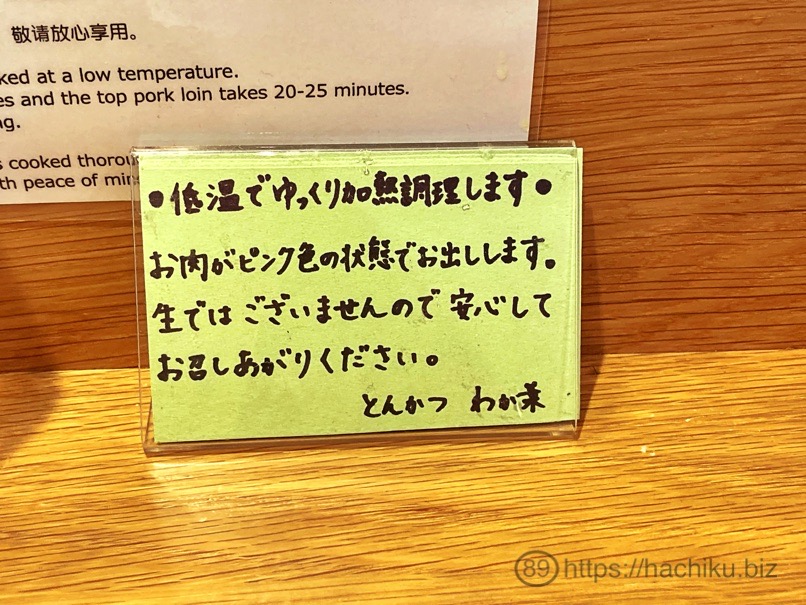 敬请放心享用。
ked at a low temperature.
es and the top pork loin takes 20-25 minutes.
ng.
s cooked thorou
th peace of min
•低温でゆっくり加熱調理します•
お肉がピンク色の状態でお出しします。
生ではございませんので 安心して
お召しあがりください。
とんかつ わか葉
89 https://hachiku.biz